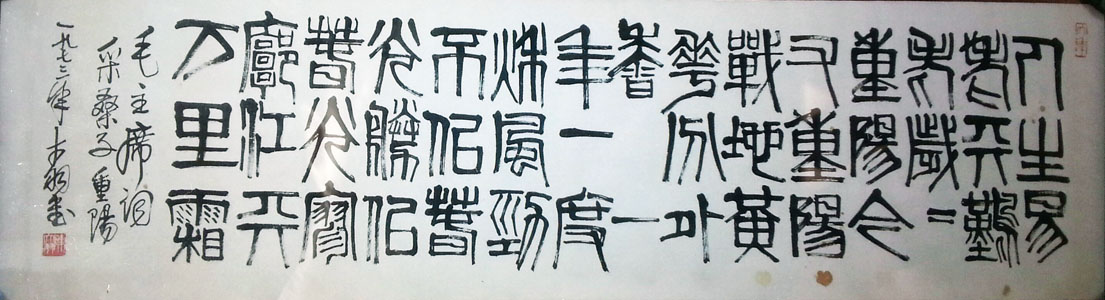 人生易
老天難
老歲=
重陽今
又重陽
戰地黃
華分外
香 一
年一度
秌風勁
不佀春
光勝佀
春光寥
廓江天
万里霜
毛主席詞
采桑子重陽
一九七三年